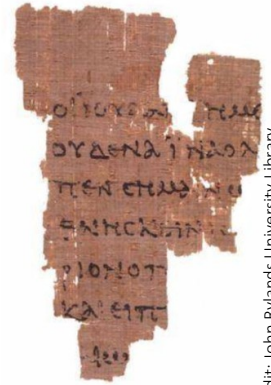 ΟΙ ΙΟΥΔΑΙ ΗΜΙ
ΟΥΔΕΝΑ ΪΝΑ Ο Λ
ΠΕΝ ϹΗΜΑΙΝΩ
ΘΝΗϹΚΕΙΝ
ΡΙΟΝ Ο Π
ΚΑΙ ΕΙΠ
dit: John Rylands University Library